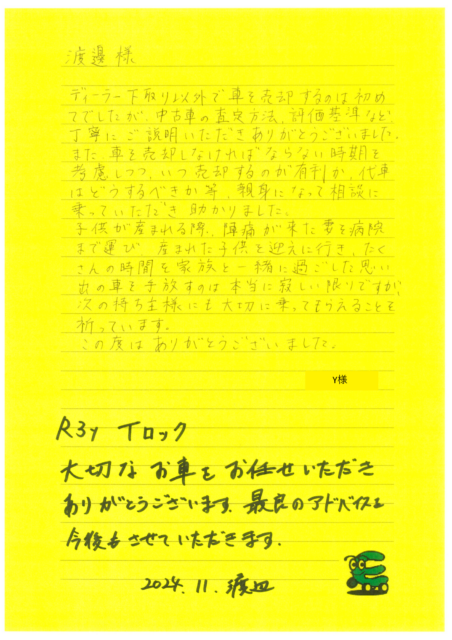 渡邉様
ディーラー下取り以外で車を売却するのは初め
てでしたが、中古車の査定方法、評価基準など
丁寧にご説明いただきありがとうございました。
また、車を売却しなければならない時期を
考慮しつつ、いつ売却するのが有利か、代車
はどうするべきか等、親身になって相談に
乗っていただき助かりました。
子供が産まれる際、陣痛が来た妻を病院
まで運び、産まれた子供を迎えに行き、たく
さんの時間を家族と一緒に過ごした思い
出の車を手放すのは本当に寂しい限りですが、
次の持ち主様にも大切に乗ってもらえることを
祈っています。
この度はありがとうございました。
Y様
R3y Tロック
大切なお車をお任せいただき
ありがとうございます。最良のアドバイスを
今後もさせていただきます。
2024.11.渡辺